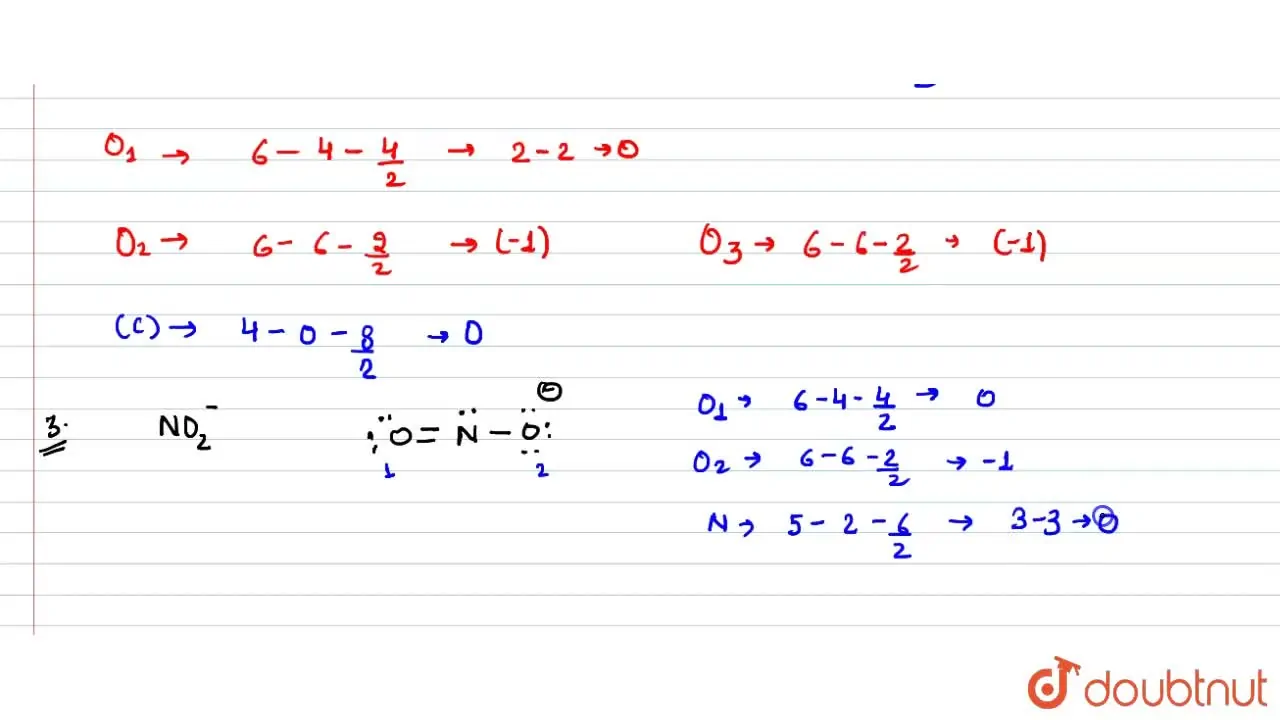 O₁ → 6 - 4 - 4/2 → 2 - 2 → 0
O₂ → 6 - 6 - 2/2 → (-1)
O₃ → 6 - 6 - 2/2 → (-1)
(C) → 4 - 0 - 8/2 → 0
3. NO₂⁻
O = N - O ⊖
1 2
O₁ → 6 - 4 - 4/2 → 0
O₂ → 6 - 6 - 2/2 → -1
N → 5 - 2 - 6/2 → 3 - 3 → 0
doubtnut